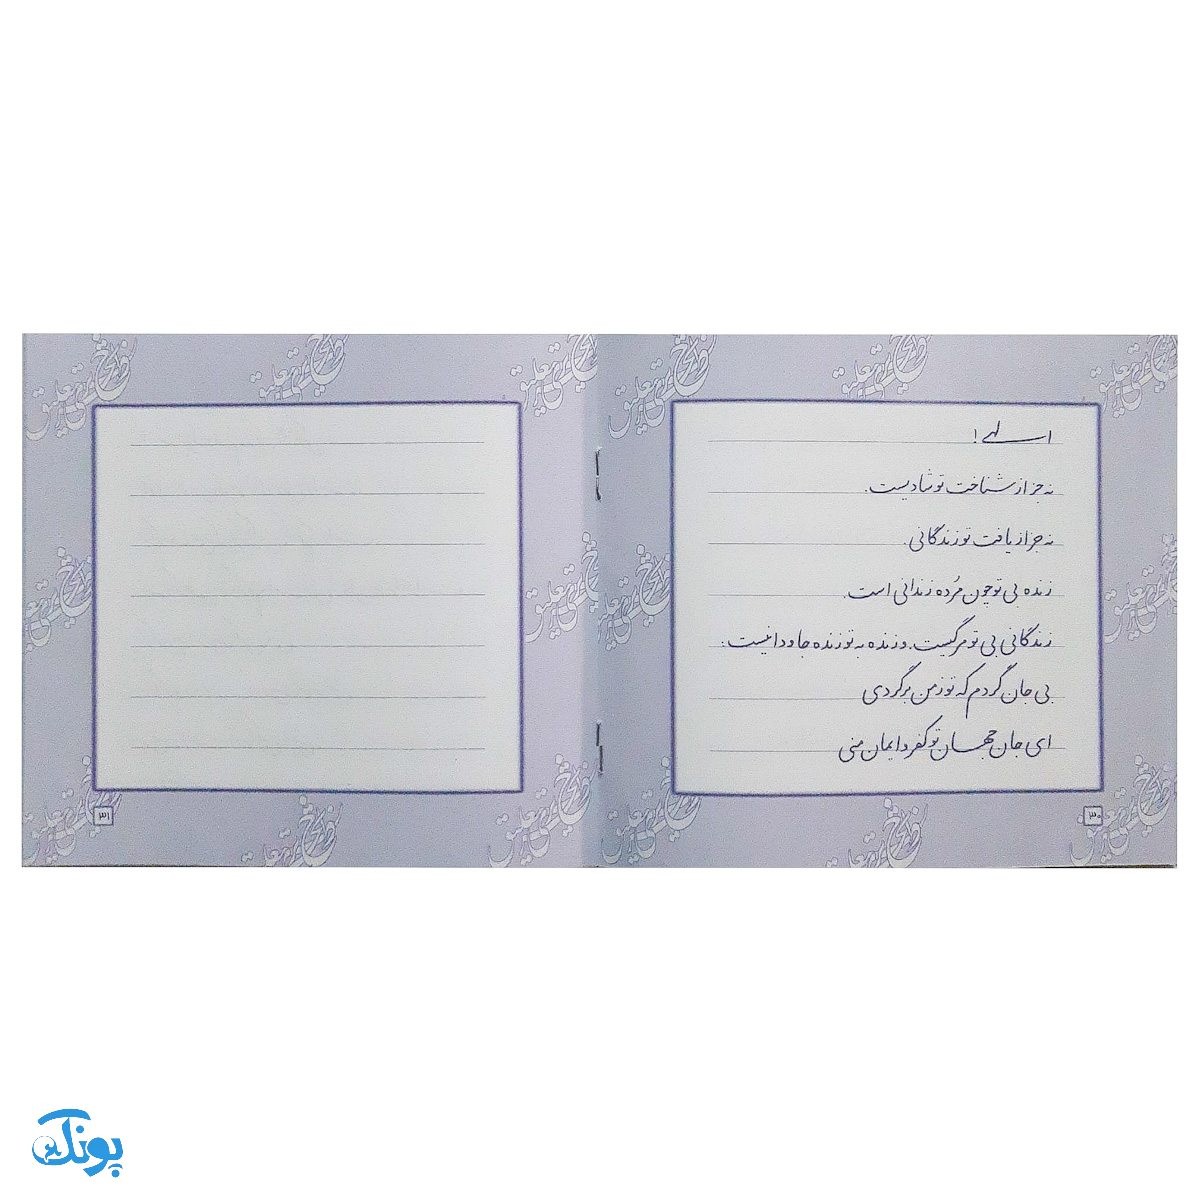 الهی!
نه جز از شناخت تو شادیست.
نه جز از یافت تو زندگانی.
زنده بی تو چون مُرده زندانی است.
زندگانی بی تو مرگیست. و زنده به تو زنده جاودانیست.
بی جان گردم که تو ز من برگردی
ای جان جهان تو کفر و ایمان منی
۳۰
۳۱
پونک